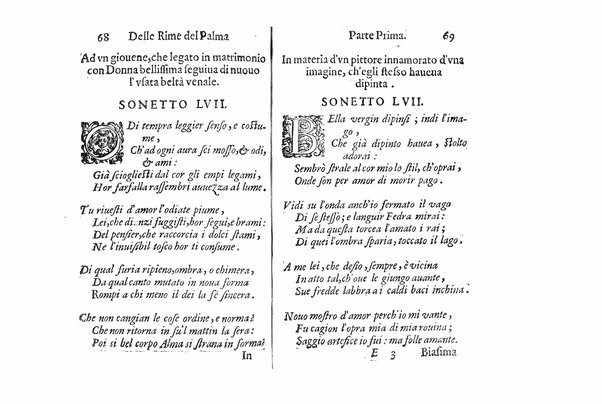 68 Delle Rime del Palma
Ad vn giouene, che legato in matrimonio
con Donna bellissima seguiua di nuouo
l'vsata beltà venale.
SONETTO LVII.
O Di tempra leggier senso, e costu-
me,
Ch'ad ogni aura sei mosso, & odi,
& ami:
Già sciogliesti dal cor gli empi legami,
Hor farfalla rassembri auuezza al lume.
Tu riuesti d'amor l'odiate piume,
Lei, che dianzi fuggisti, hor segui, e brami:
Del pensier, che raccorcia i dolci stami,
Ne l'inuisibil tosco hor ti consume.
Di qual furia ripieno, ombra, o chimera,
Da qual canto mutato in noua forma
Rompi a chi meno il dei la fè sincera.
Che non cangian le cose ordine, e norma?
Che non ritorna in su'l mattin la sera:
Poi si bel corpo Alma si strana in forma?
In
Parte Prima. 69
In materia d'vn pittore innamorato d'vna
imagine, ch'egli stesso haueua
dipinta.
SONETTO LVII.
BElla vergin dipinsi; indi l'ima-
go,
Che già dipinto hauea, stolto
adorai:
Sembrò strale al cor mio lo stil, ch'oprai,
Onde son per amor di morir pago.
Vidi su l'onda anch'io fermato il vago
Di se stesso; e languir Fedra mirai:
Ma da questa torcea l'amato i rai;
Di quei l'ombra sparia, toccato il lago.
A me lei, che desio, sempre, è vicina
In atto tal, ch'oue le giungo auante,
Sue fredde labbra a i caldi baci inchina.
Nouo mostro d'amor perch'io mi vante,
Fu cagion l'opra mia di mia rouina;
Saggio artefice io fui: ma folle amante.
E 3 Biasima